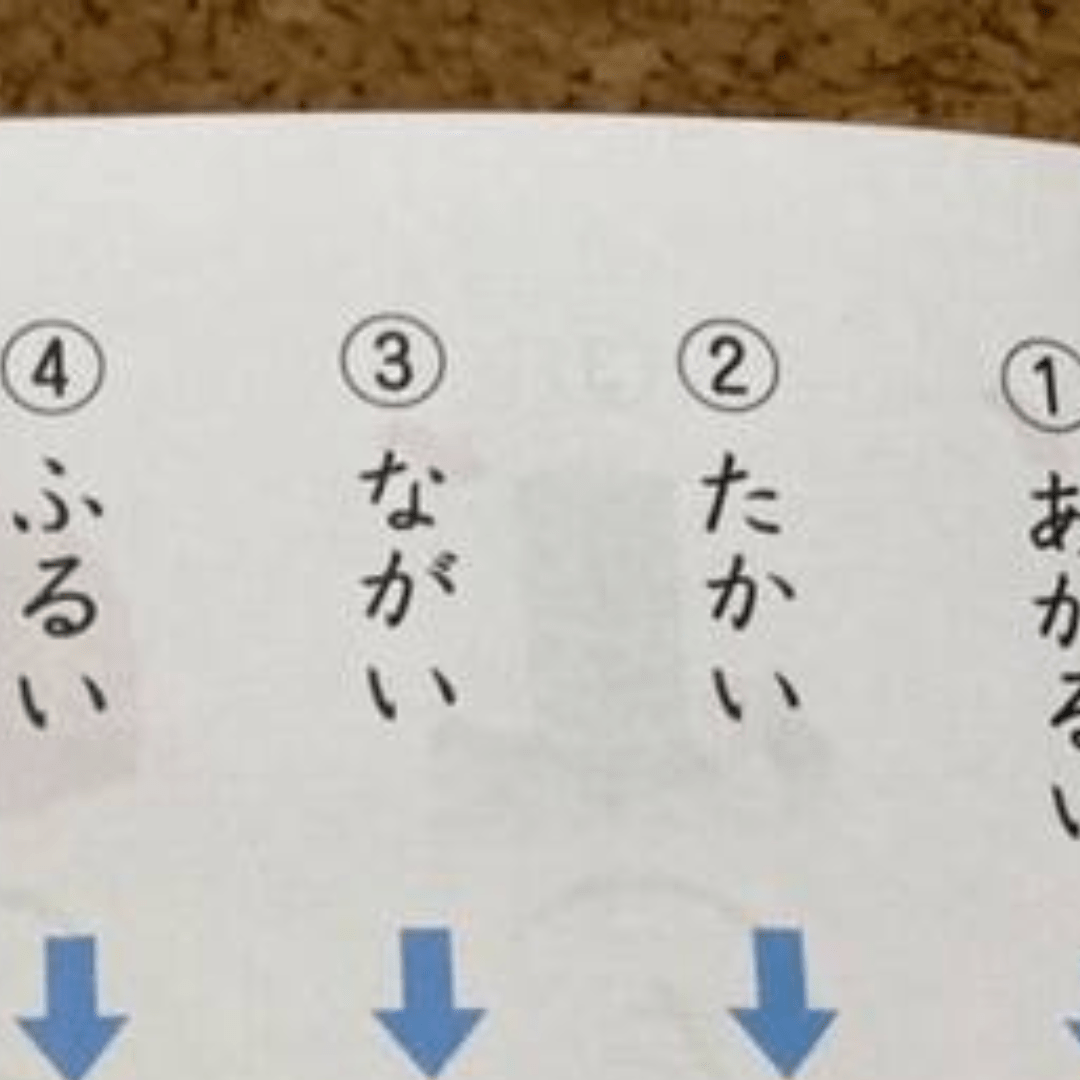 ① あかるい
② たかい
③ ながい
④ ふるい